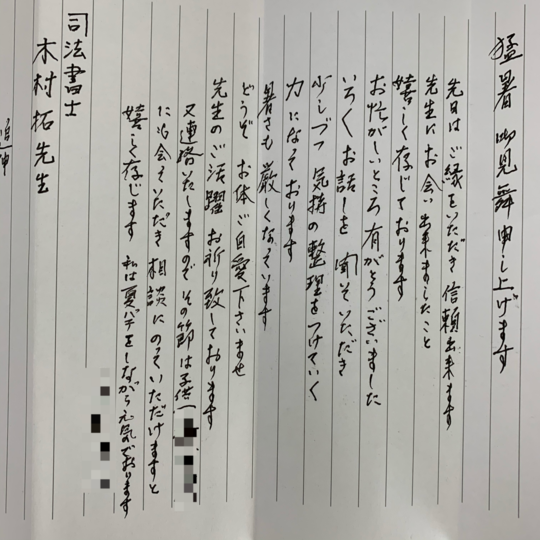 猛暑御見舞申し上げます
先日はご縁をいただき信頼出来ます
先生にお会い出来ましたこと
嬉しく存じております
お忙がしいところ有がとうございました
いろいろお話しを聞いていただき
少しづつ気持の整理をつけていく
力になっております
暑さも厳しくなっています
どうぞお体ご自愛下さいませ
先生のご活躍お祈り致しております
又連絡いたしますのでその節は子供
にも会っていただき相談にのっていただけますと
嬉しく存じます 私は夏バテをしながら元気でおります
司法書士
木村拓先生
追伸